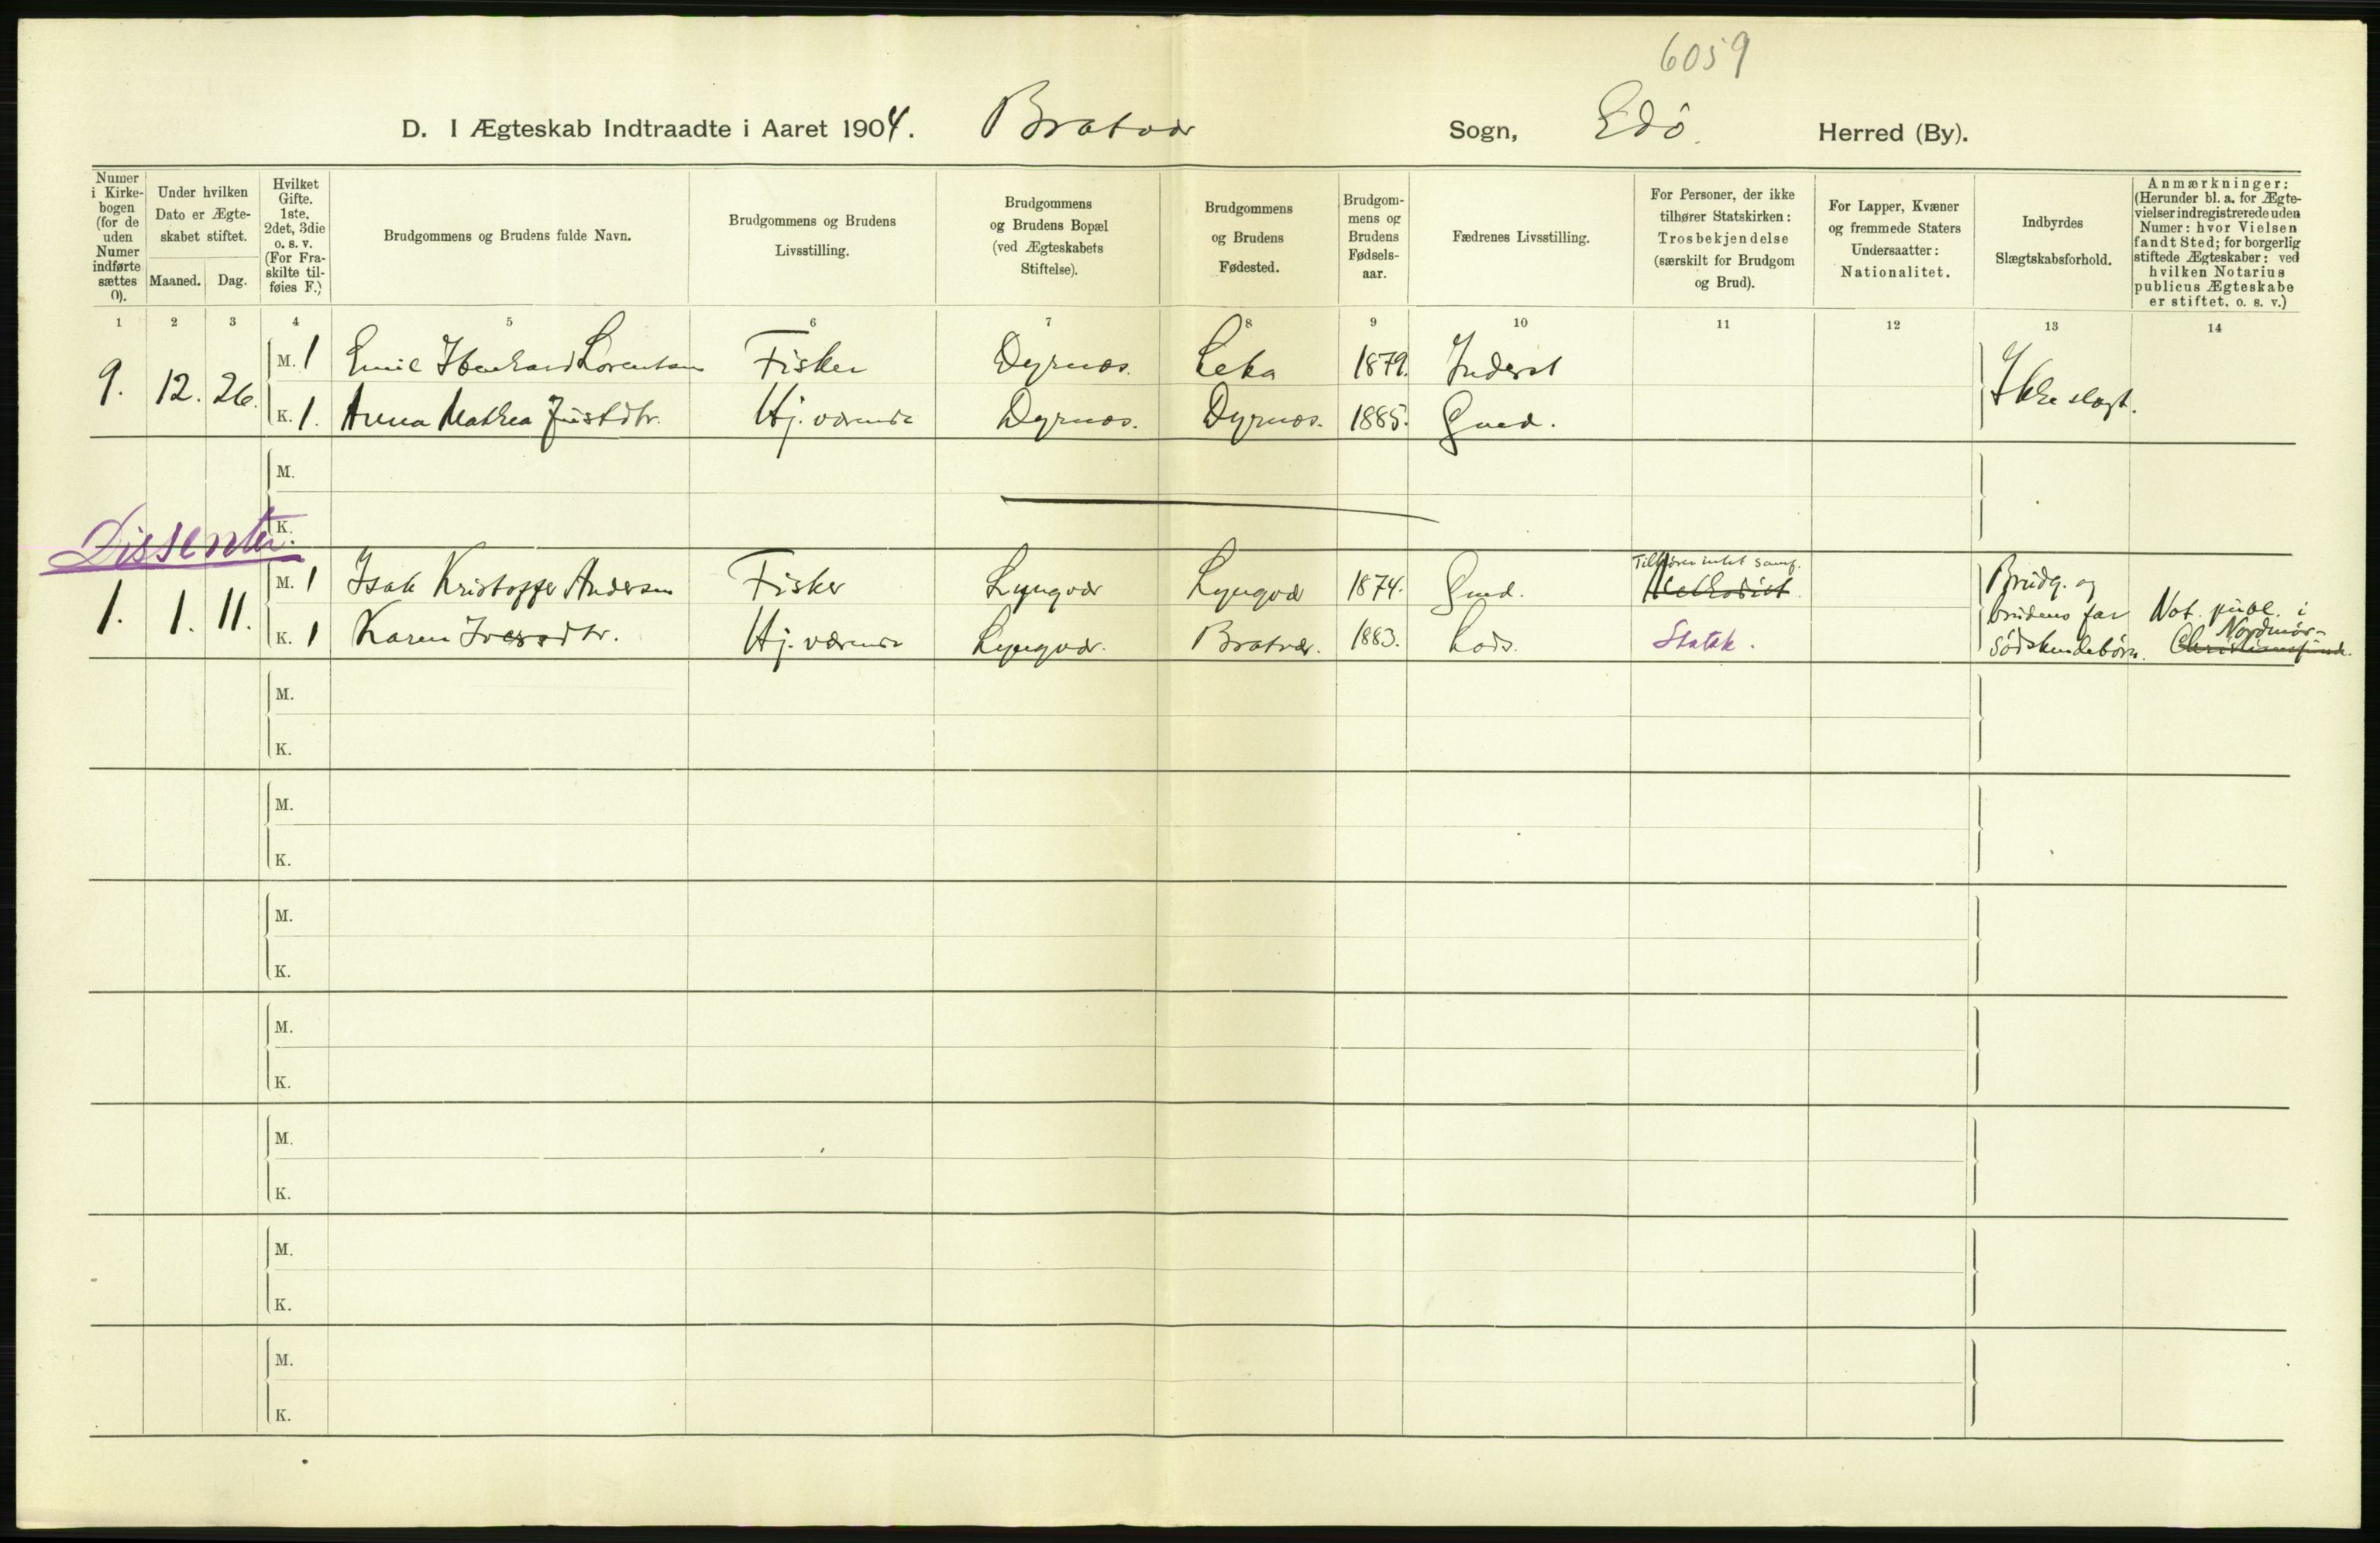 6059
D. I Ægteskab Indtraadte i Aaret 1904. Bratvær Sogn, Edö. Herred (By).
Numer i Kirkebogen (for de uden Numer indførte sættes 0).
Under hvilken Dato er Ægteskabet stiftet.
Maaned. Dag.
Hvilket Gifte. 1ste, 2det, 3die o. s. v. (For Fraskilte tilføies F.)
Brudgommens og Brudens fulde Navn.
Brudgommens og Brudens Livsstilling.
Brudgommens og Brudens Bopæl (ved Ægteskabets Stiftelse).
Brudgommens og Brudens Fødested.
Brudgommens og Brudens Fødselsaar.
Fædrenes Livsstilling.
For Personer, der ikke tilhører Statskirken: Trosbekjendelse (særskilt for Brudgom og Brud).
For Lapper, Kvæner og fremmede Staters Undersaatter: Nationalitet.
Indbyrdes Slægtskabsforhold.
Anmærkninger: (Herunder bl. a. for Ægtevielser indregistrerede uden Numer: hvor Vielsen fandt Sted; for borgerlig stiftede Ægteskaber: ved hvilken Notarius publicus Ægteskabe er stiftet, o. s. v.)
1 2 3 4 5 6 7 8 9 10 11 12 13 14
9. 12. 26. M. 1 Emil Lorentsen Fisker Dyrnæs. Leka 1879. Inderst Ikke slægt.
K. 1. Anna Mathea Justdtr. Hj. værende Dyrnæs. Dyrnæs. 1885. Gaad.
M.
K.
Dissenter.
1. 1. 11. M. 1 Isak Kristoffer Andersen Fisker Lyngvær Lyngvær 1874. Gaad. Tilhører intet samf. Methodist. Brudg. og
K. 1 Karen Iversdtr. Hj. værende Lyngvær. Bratvær. 1883. Lods. Statsk. brudens far Not. publ. i
Nordmör-
Södskendebörn. Christianssund.
M.
K.
M.
K.
M.
K.
M.
K.
M.
K.
M.
K.
M.
K.